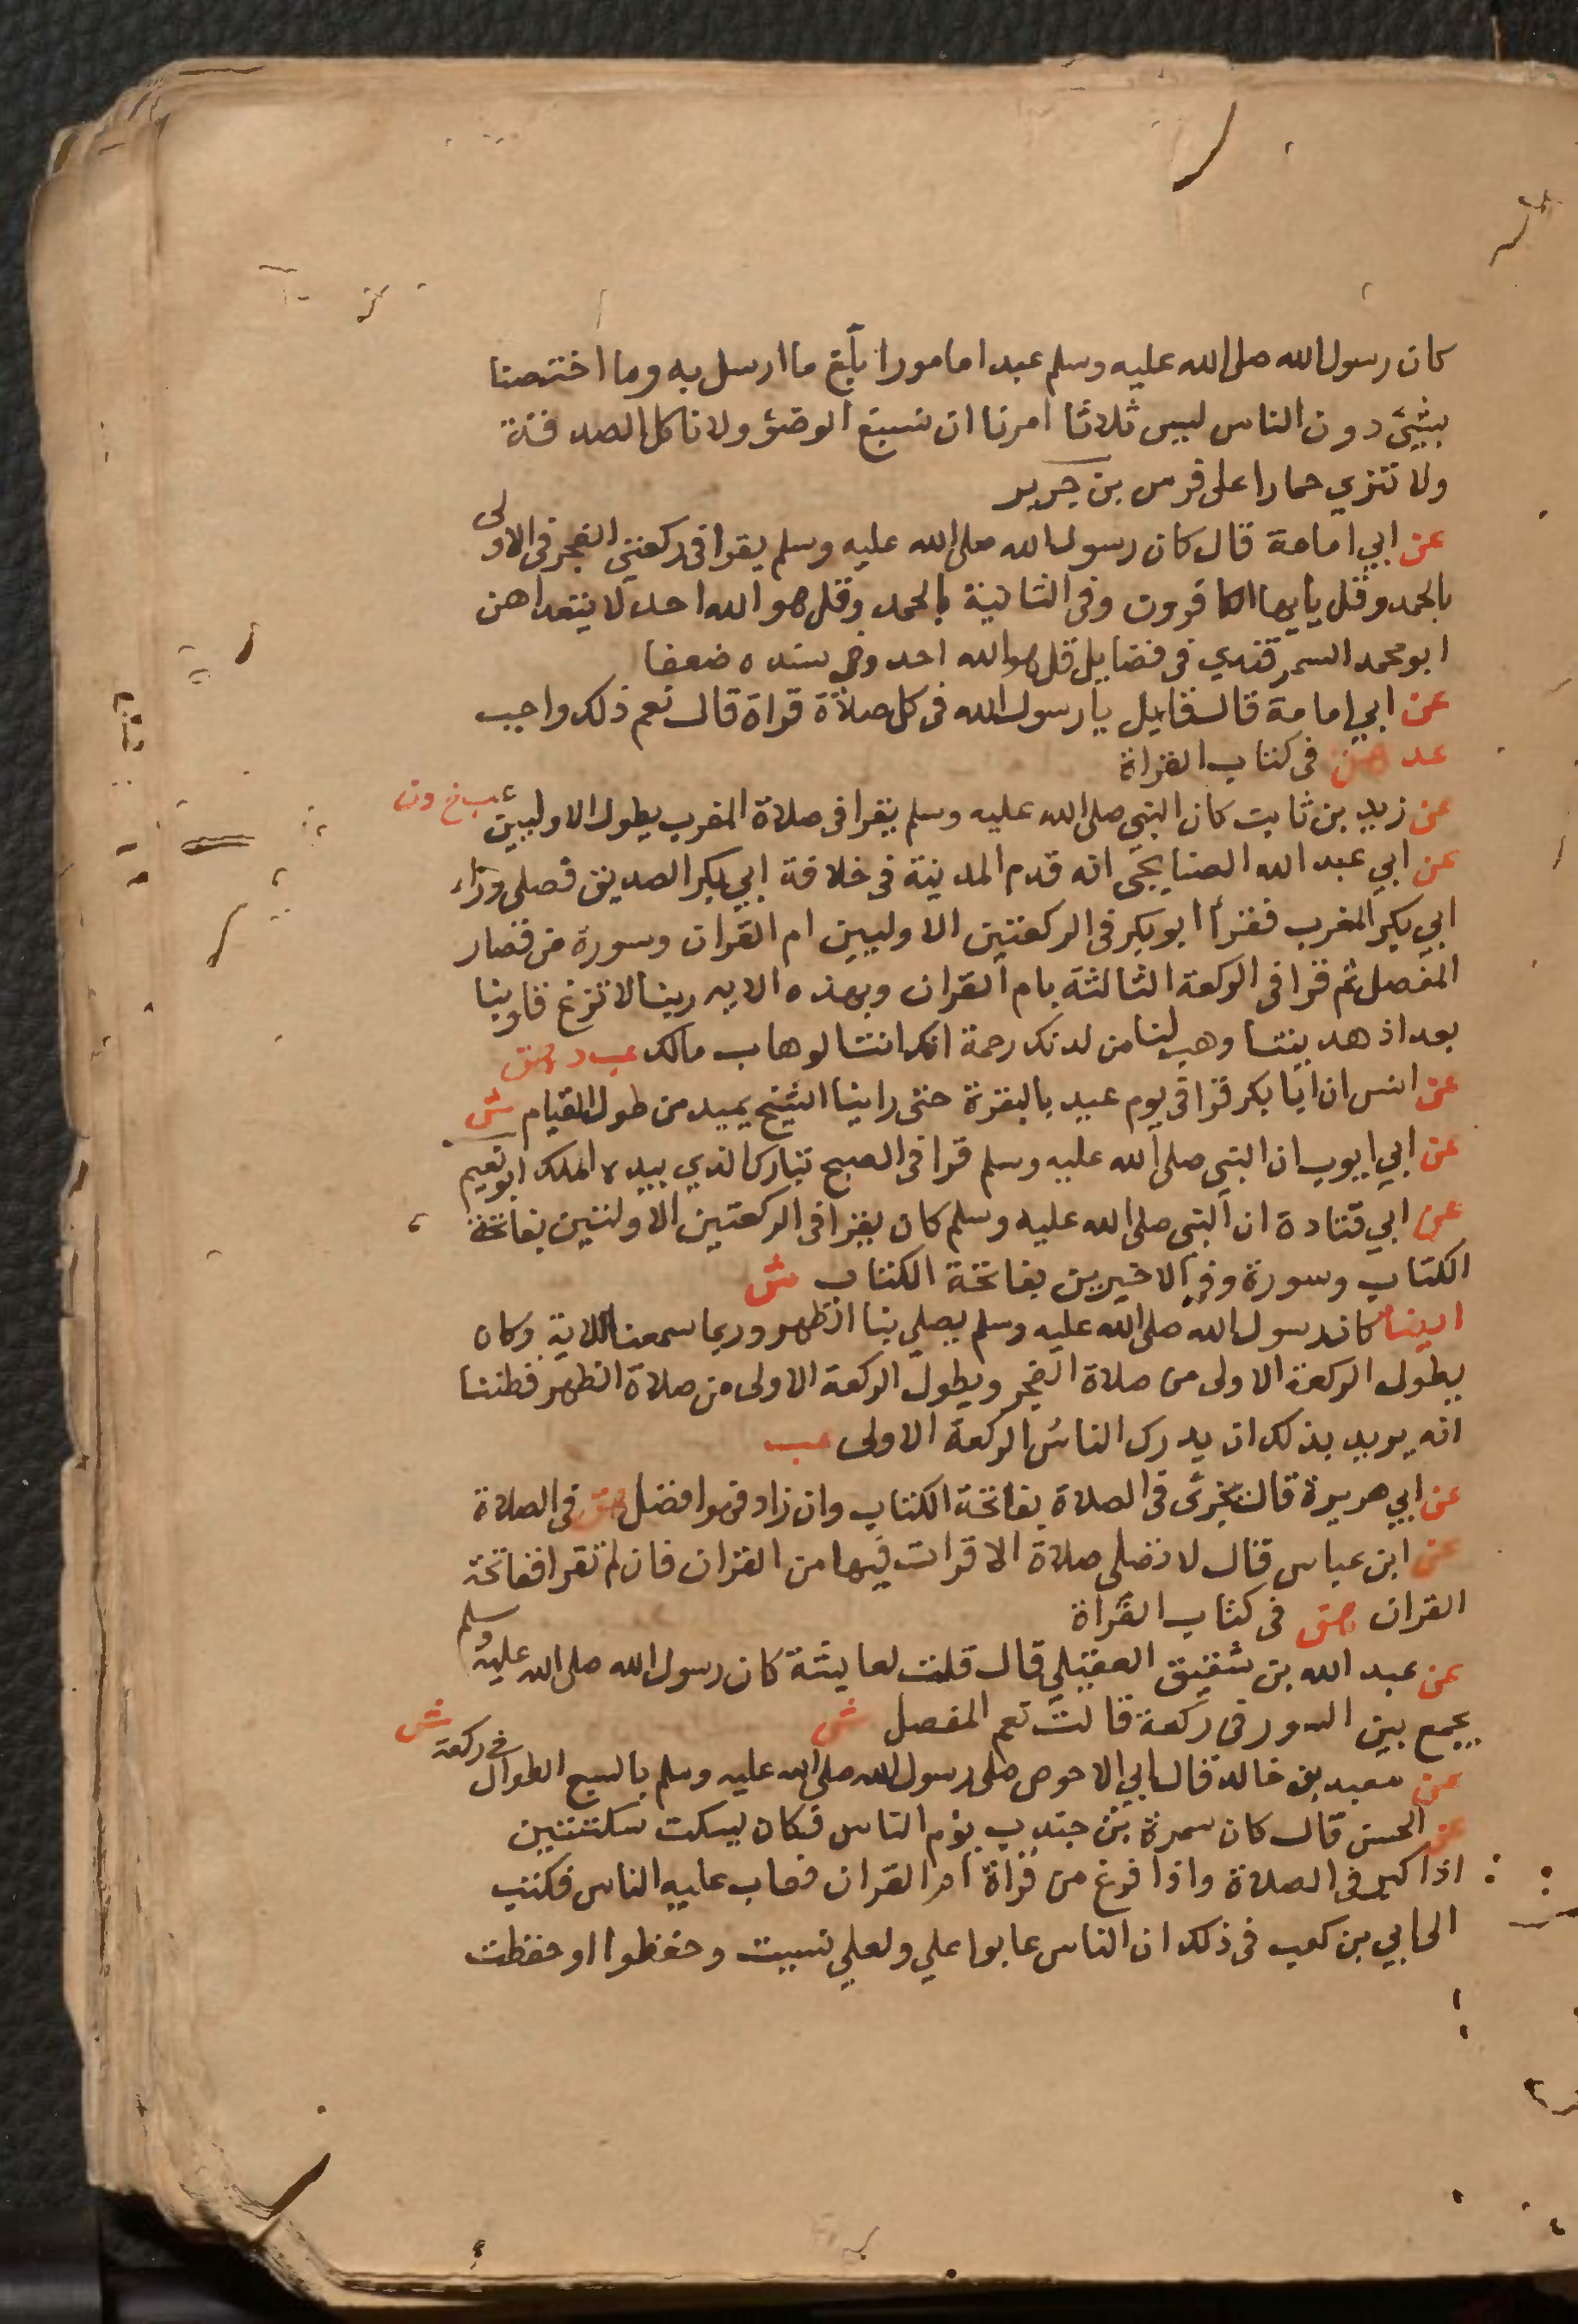 كان رسول الله صلى الله عليه وسلم عبدا مامورا بلغ ما ارسل به وما اختصنا
بشيئ دون الناس ليس ثلاثا امرنا ان نسبغ الوضؤ ولا ناكل الصدقة
ولا ننزي حمارا على فرس بن جرير
عن ابي امامة قال كان رسول الله صلى الله عليه وسلم يقرا فى ركعتي الفجر فى الاولى
بالحمد وقل يايها الكافرون وفى الثانية بالحمد وقل هو الله احد لا يتعداهن
ابو محمد السمرقندي فى فضايل قل هو الله احد وفى سنده ضعفا
عن ابي امامة قال قيل يا رسول الله فى كل صلاة قراة قال نعم ذلك واجب
عد هق فى كتاب القراة
عن زيد بن ثابت كان النبي صلى الله عليه وسلم يقرا فى صلاة المغرب بطول الاوليين عب خ د ن
عن ابي عبد الله الصنابحي انه قدم المدينة فى خلافة ابي بكر الصديق فصلى وراء
ابي بكر المغرب فقرأ ابو بكر فى الركعتين الاوليين ام القران وسورة من قصار
المفصل ثم قرا فى الركعة الثالثة بام القران وبهذه الايه ربنا لا تزغ قلوبنا
بعد اذ هديتنا وهب لنا من لدنك رحمة انك انت الوهاب مالك عب د هق
عن انس ان ابا بكر قرا فى يوم عيد بالبقرة حتى راينا الشيخ يميد من طول القيام ش
عن ابي ايوب ان النبي صلى الله عليه وسلم قرا فى الصبح تبارك الذي بيده الملك ابو نعيم
عن ابي قتادة ان النبي صلى الله عليه وسلم كان يقرا فى الركعتين الاولتين بفاتحة
الكتاب وسورة وفى الاخيرين بفاتحة الكتاب ش
ايضا كان رسول الله صلى الله عليه وسلم يصلي بنا الظهر وربما سمعنا الاية وكان
يطول الركعة الاولى من صلاة الفجر ويطول الركعة الاولى من صلاة الظهر فظننا
انه يريد بذلك ان يدرك الناس الركعة الاولى عب
عن ابي هريرة قال تجزئ فى الصلاة بفاتحة الكتاب وان زاد فهو افضل هق فى الصلاة
عن ابن عباس قال لا تصلى صلاة الا قرات فيها من القران فان لم تقرا ففاتحة
القران هق فى كتاب القراة
عن عبد الله بن شقيق العقيلي قال قلت لعايشة كان رسول الله صلى الله عليه وسلم
يجمع بين السور فى ركعة قالت نعم المفصل ش
عن معبد بن خالد قال ابي الاحوص صلى رسول الله صلى الله عليه وسلم بالسبع الطوال فى ركعة ش
عن الحسن قال كان سمرة بن جندب يؤم الناس فكان يسكت سكتتين
اذا كبر فى الصلاة واذا فرغ من قراة ام القران فعاب عليه الناس فكتب
الى ابي بن كعب فى ذلك ان الناس عابوا علي ولعلي نسيت وحفظوا او حفظت